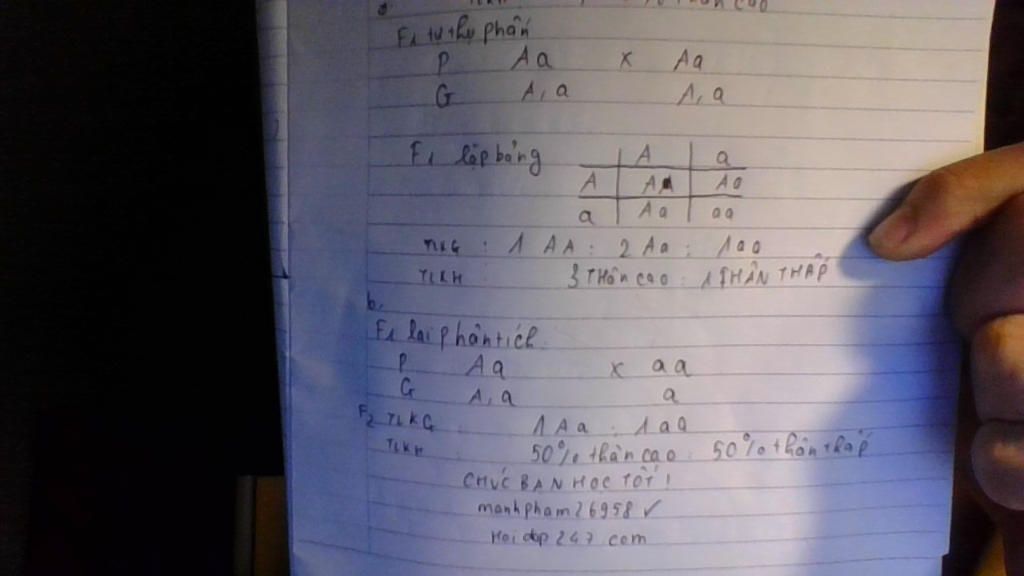 a.
F1 tự thụ phấn
P Aa x Aa
G A, a A, a
F1 lập bảng
A a
A AA Aa
a Aa aa
TLKG : 1 AA : 2 Aa : 1aa
TLKH : 3 THân cao : 1 THÂN THẤP
b.
F1 lai phân tích.
P Aa x aa
G A, a a
F2 TLKG 1 Aa : 1 aa
TLKH : 50% thân cao : 50% thân thấp
CHÚC BẠN HỌC TỐT !
manhpham26958 ✓
Hoidap247.com